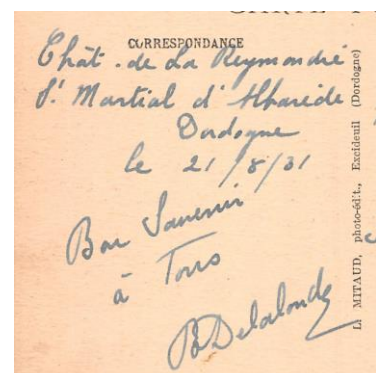 CORRESPONDANCE
Chât. de La Reymondie
St Martial d'Albarède
Dordogne
le 21/8/31
Bon Souvenir
à Tous
B Delalonde
MITAUD, photo-édit., Excideuil (Dordogne)